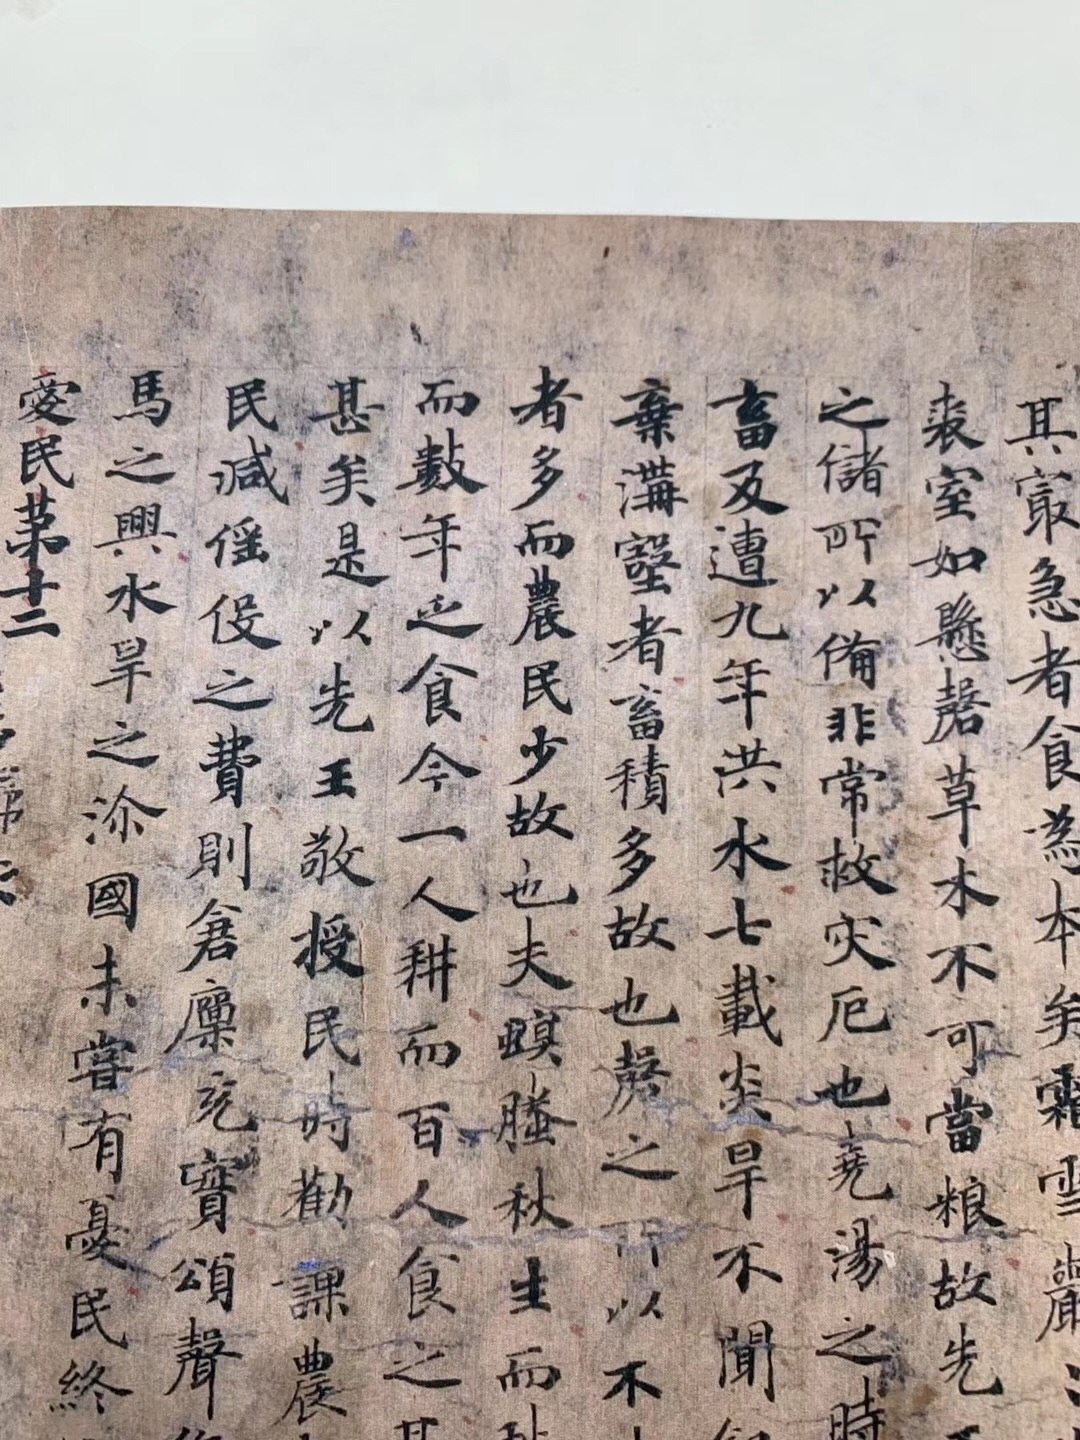 其冣急者食為本矣霜雪巖
裘室如懸磬草木不可當粮故先
之儲所以俻非常救灾厄也堯湯之時
畜及遭九年洪水七載炎旱不聞
棄溝壑者畜積多故也𥝠之所以不
者多而農民少故也夫螟螣秋生而秋
而數年乏食今一人耕而百人食之其
甚矣是以先王敬授民時勸課農
民減傜伇之費則倉廩充實頌聲
馬之興水旱之沴國未嘗有憂民終
愛民第十二